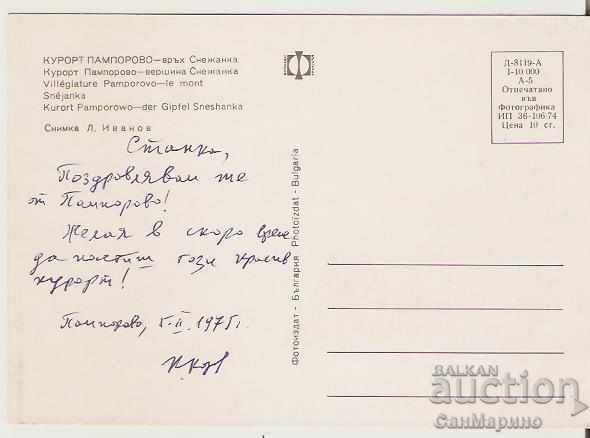 КУРОРТ ПАМПОРОВО—връх Снежанка
Курорт Пампорово—вершина Снежанка
Villégiature Pamporovo—le mont
Snéjanka
Kurort Pamporowo—der Gipfel Sneshanka
Снимка Л. Иванов
Станка,
Поздравявам те
от Пампорово!
Желая в скоро време
да посетиш този красив
курорт!
Пампорово, 5.II.1975 г.
Фотоиздат - България Photoizdat - Bulgaria
Д-8119-А
1-10 000
А-5
Отпечатано
във
Фотографика
ИП 36-106/74
Цена 10 ст.
BALKAN
auction
СанМарино